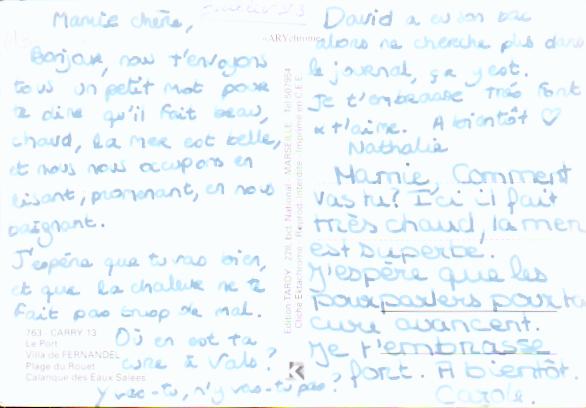 Mamie chère,
Bonjour, nous t'envoyons
tous un petit mot pour
te dire qu'il fait beau,
chaud, la mer est belle,
et nous nous occupons en
lisant, promenant, en nous
baignant.
J'espère que tu vas bien,
et que la chaleur ne te
fait pas trop de mal.
Où en est ta
cure à Vals ?
Y vas-tu, n'y vas-tu pas ?
763 - CARRY 13
Le Port
Villa de FERNANDEL
Plage du Rouet
Calanque des Eaux Salées
«ARYchrome
Edition TARDY 228, bd. National - MARSEILLE
Cliché Ektachrome Reprod. Interdite Imprimé en C.E.E.
David a eu son bac
alors ne cherche plus dans
le journal, ça y est.
Je t'embrasse très fort
et t'aime. A bientôt ♡
Nathalie
Mamie, Comment
vas tu? Ici il fait
très chaud, la mer
est superbe.
J'espère que les
pourparlers pour ta
cure avancent.
Je t'embrasse
fort. A bientôt.
Carole.